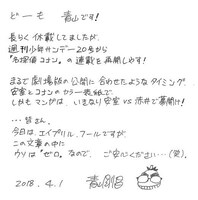 どーも 青山です!
長らく休載してましたが、
週刊少年サンデー20号から
『名探偵コナン』の連載も再開します!
まるで劇場版の公開に合わせたようなタイミング、
安室とコナンのカラー表紙で、
しかもマンガは、いきなり安室vs赤井で幕開け!
…皆さん、
今日は、エイプリル、フールですが、
この文章の中に
ウソは"ゼロ"なので、ご安心ください…(笑)。
2018.4.1 青山剛昌